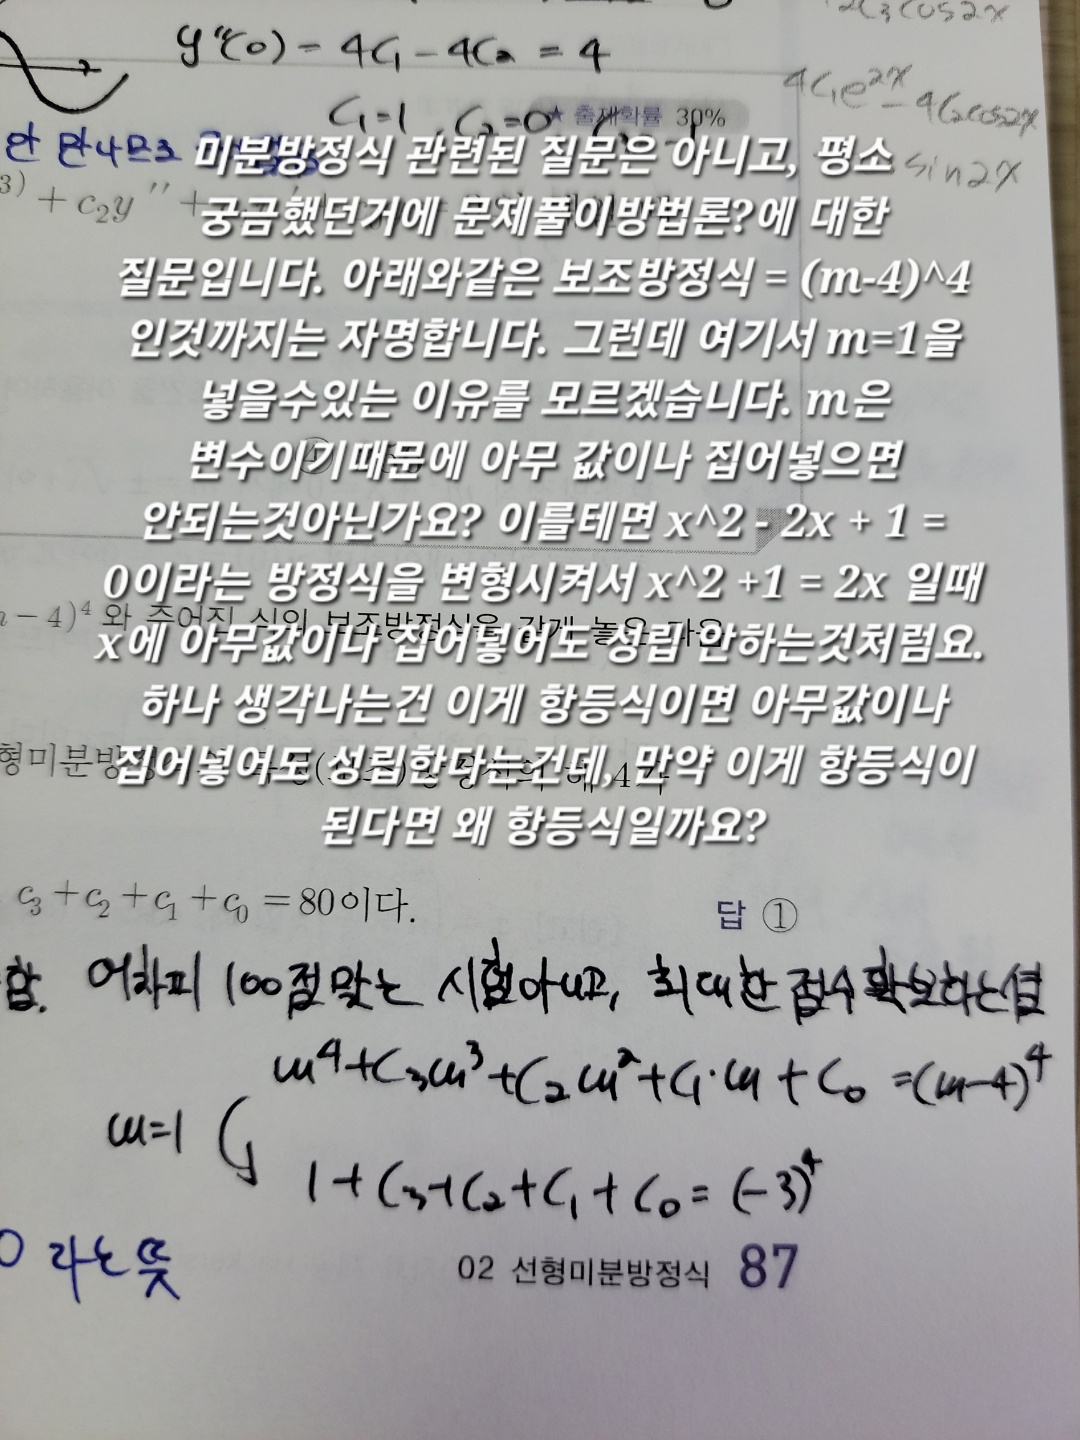 y"(0) = 4C₁ - 4C₂ = 4
C₁=1, C₂=0
★ 출제확률 30%
2C₃cos2x
4C₁e^2x - 4C₂cos2x
sin2x
만 만나므로
미분방정식 관련된 질문은 아니고, 평소
궁금했던거에 문제풀이방법론?에 대한
질문입니다. 아래와같은 보조방정식 = (m-4)^4
인것까지는 자명합니다. 그런데 여기서 m=1을
넣을수있는 이유를 모르겠습니다. m은
변수이기때문에 아무 값이나 집어넣으면
안되는것아닌가요? 이를테면 x^2 - 2x + 1 =
0이라는 방정식을 변형시켜서 x^2 +1 = 2x 일때
x에 아무값이나 집어넣어도 성립 안하는것처럼요.
하나 생각나는건 이게 항등식이면 아무값이나
집어넣어도 성립한다는건데, 만약 이게 항등식이
된다면 왜 항등식일까요?
3) + c₂y″ +
- 4)⁴ 와 주어진 식의 보조방정식을 같게 놓으면 다음
형미분방
c₃ + c₂ + c₁ + c₀ = 80이다.
답 ①
함. 어차피 100점맞는 시험아니고, 최대한 점수확보하는셤
m⁴+C₃m³+C₂m²+C₁·m+C₀ =(m-4)⁴
m=1
1+C₃+C₂+C₁+C₀=(-3)⁴
0 라는 뜻
02 선형미분방정식 87